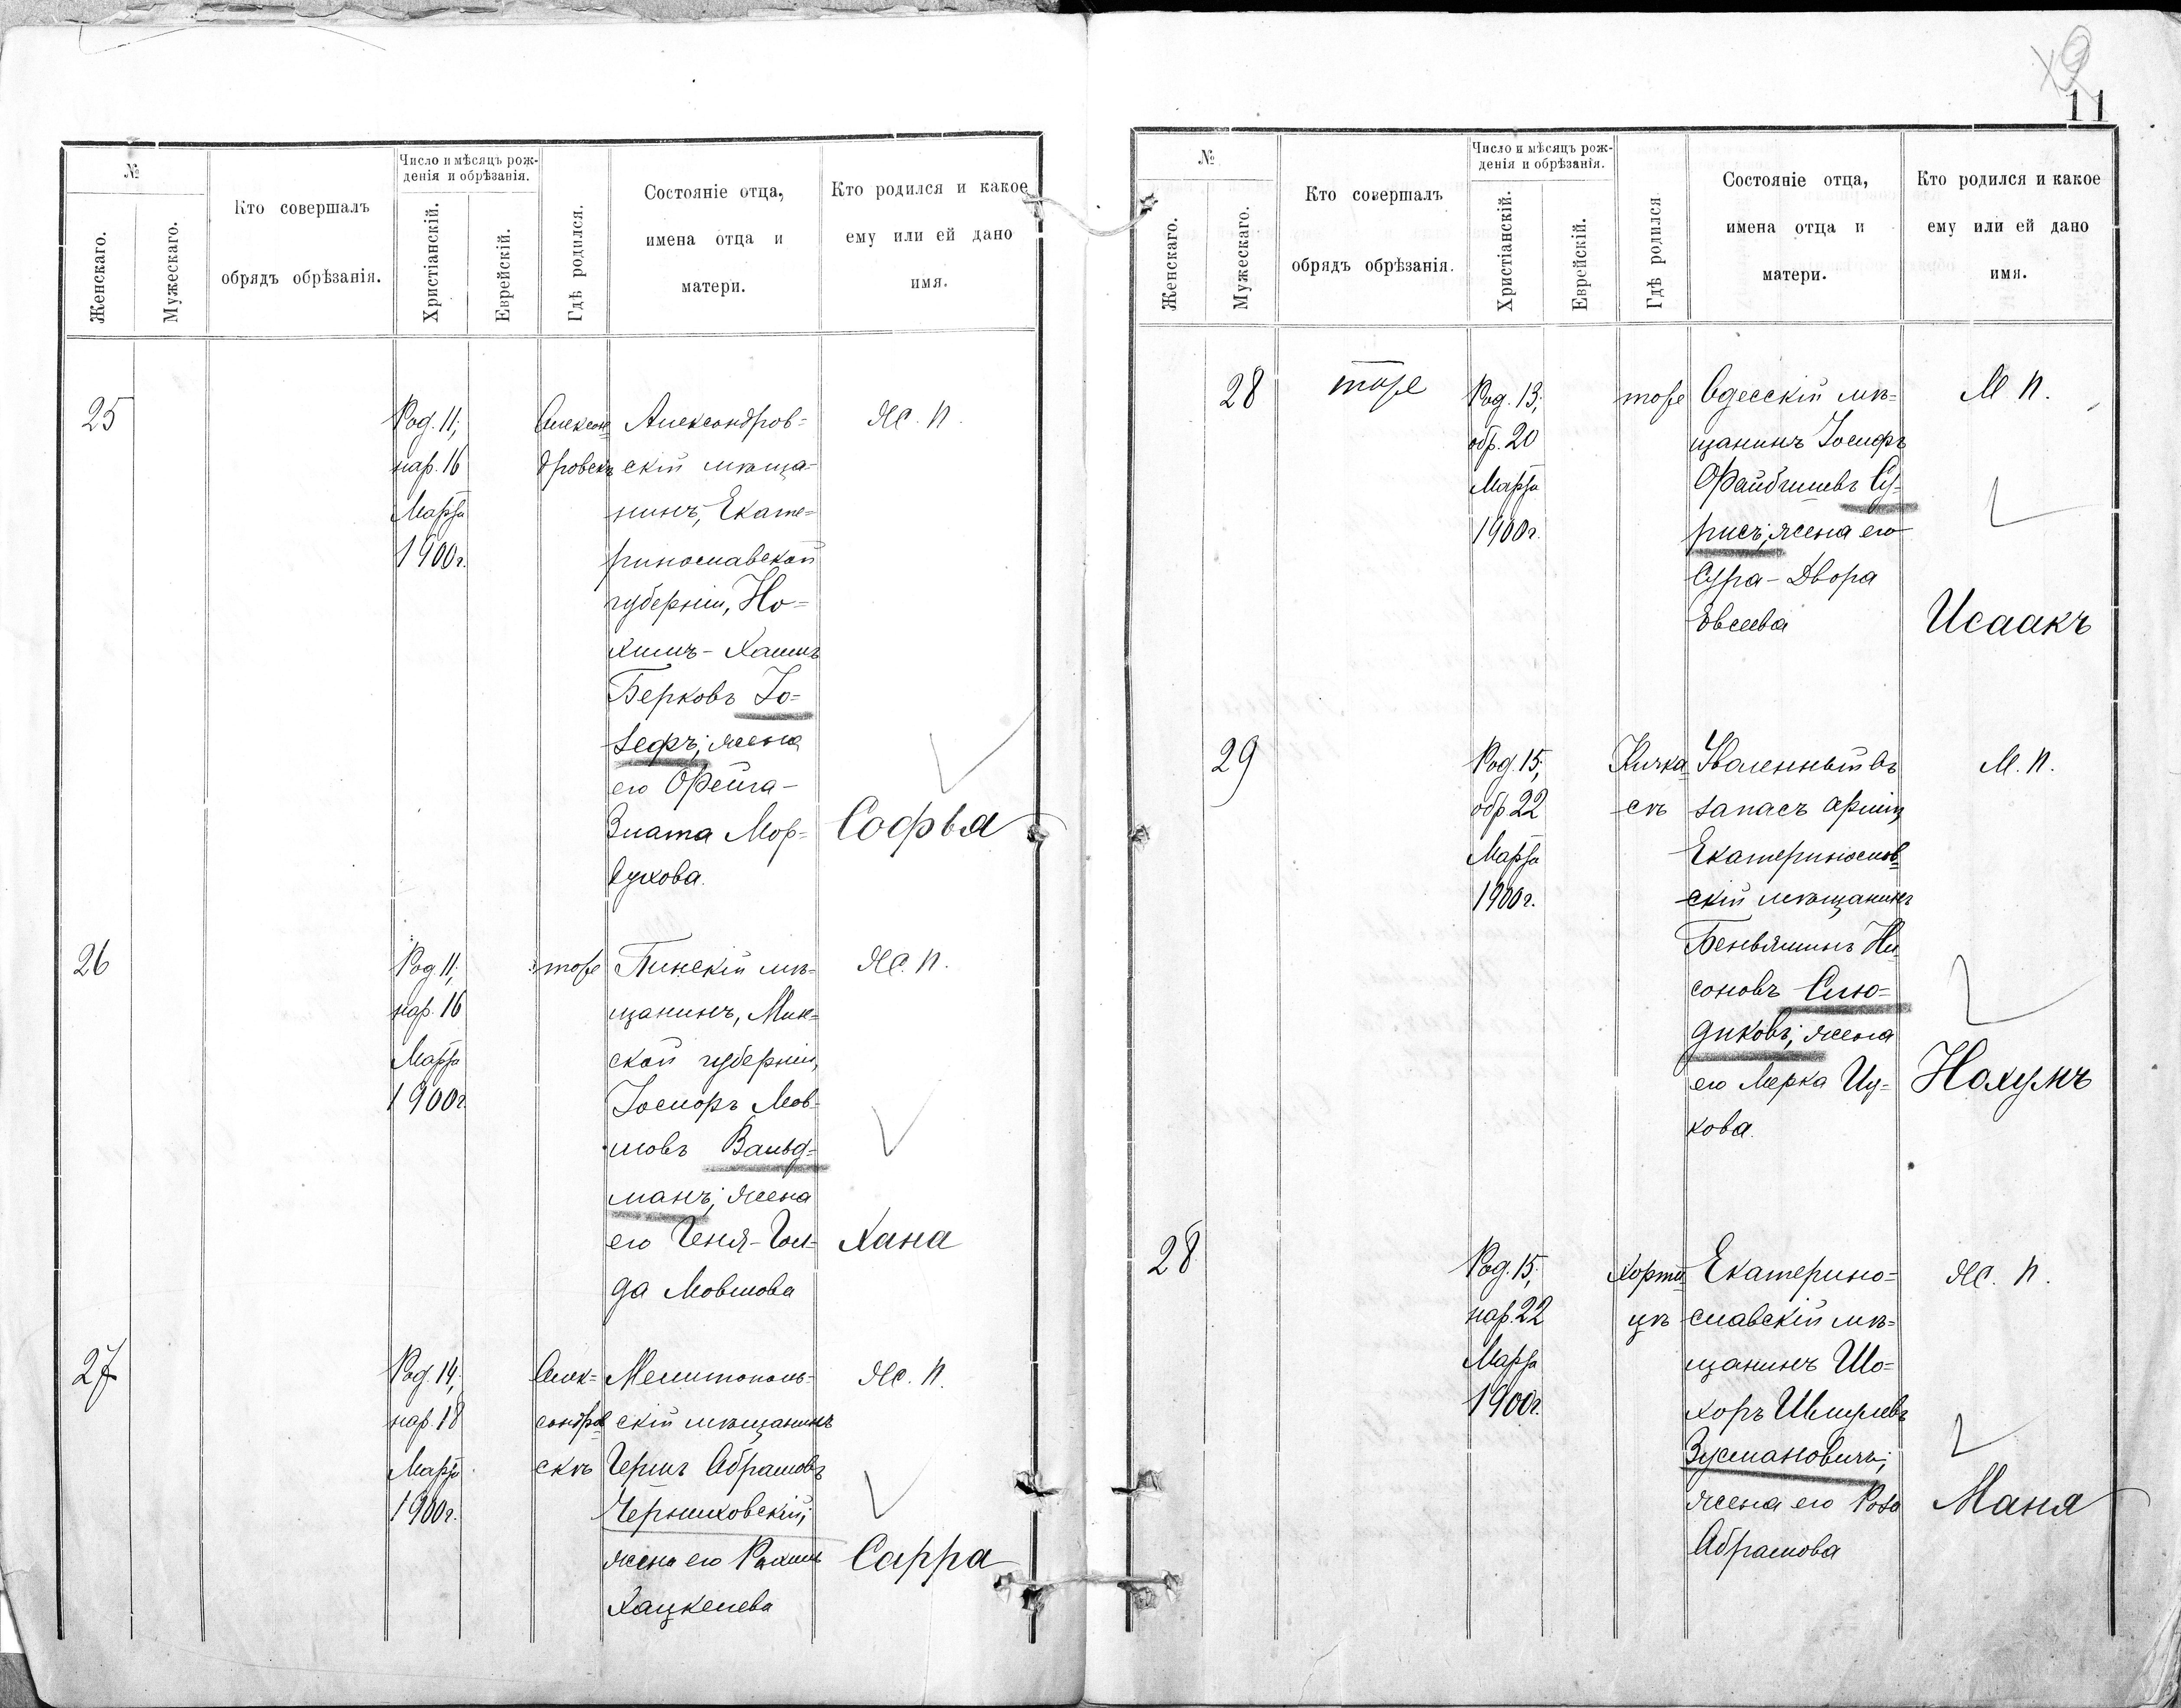 №
Женскаго.
Мужескаго.
Кто совершалъ
обрядъ обрѣзанія.
Число и мѣсяцъ рож-
денія и обрѣзанія.
Христіанскій.
Еврейскій.
Гдѣ родился.
Состояніе отца,
имена отца и
матери.
Кто родился и какое
ему или ей дано
имя.
25
Род. 11;
нар. 16
Марта
1900 г.
Алексан-
дровскъ
Александров=
скій мѣща-
нинъ, Екате=
ринославской
губерніи, Но=
химъ - Хаимъ
Берковъ Іо=
зефъ; жена
его Фейга -
Злата Мор=
духова.
Ж. П.
Софья
26
Род. 11;
нар. 16
Марта
1900 г.
тоже
Пинскій мѣ-
щанинъ, Мин=
ской губерніи,
Іосифъ Мов-
шовъ Вальд=
манъ; жена
его Геня - Гол-
да Мовшова
Ж. П.
Хана
27
Род. 14;
нар. 18
Марта
1900 г.
Алек=
сандров
скъ
Мелитополь-
скій мѣщанинъ
Гершъ Абрамовъ
Черниховскій;
жена его Рахиль
Хацкелева
Ж. П.
Сарра
11
№
Женскаго.
Мужескаго.
Кто совершалъ
обрядъ обрѣзанія.
Число и мѣсяцъ рож-
денія и обрѣзанія.
Христіанскій.
Еврейскій.
Гдѣ родился
Состояніе отца,
имена отца и
матери.
Кто родился и какое
ему или ей дано
имя.
28
тоже
Род. 13;
обр. 20
Марта
1900 г.
тоже
Одесскій мѣ=
щанинъ Іосифъ
Файбишевъ Су-
рисъ; жена его
Сура - Двора
Евсеева
М. П.
Исаакъ
29
Род. 15;
обр. 22
Марта
1900 г.
Кичка
съ
Уволенный въ
запасъ арміи
Екатеринослав=
скій мѣщанинъ
Беньяминъ Ни-
соновъ Слю=
диковъ; жена
его Мерка Иц-
кова.
М. П.
Нохумъ
28
Род. 15;
нар. 22
Марта
1900 г.
Хорти
цѣ
Екатерино=
славскій мѣ=
щанинъ Шо=
хоръ Шмулевъ
Зусмановичъ;
жена его Роза
Абрамова
Ж. П.
Маня